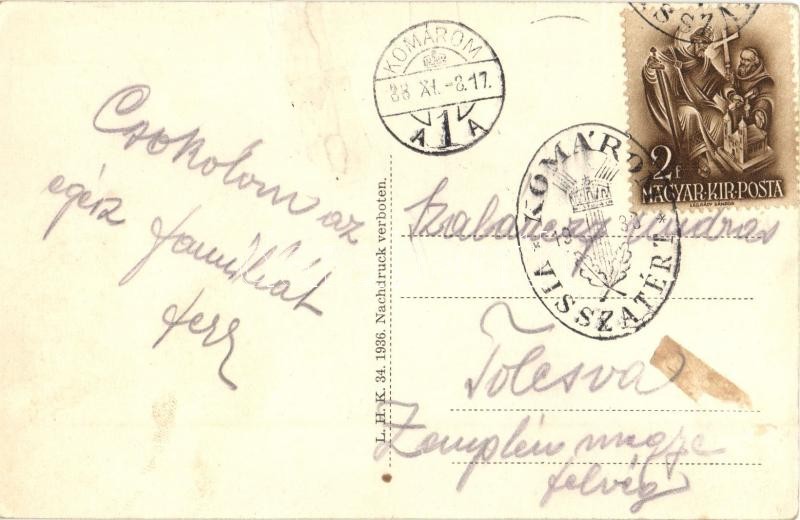 Csokolom az
egész
familiát
KOMÁROM
38 XI. -8.17.
A 1 A
KOMÁROM
1938
* VISSZATÉRT *
2 f
MAGYAR·KIR·POSTA
LÉGRÁDY SÁNDOR
L. H. K. 34. 1936. Nachdruck verboten.
András
Tolcsva
Zemplén megye
felvég